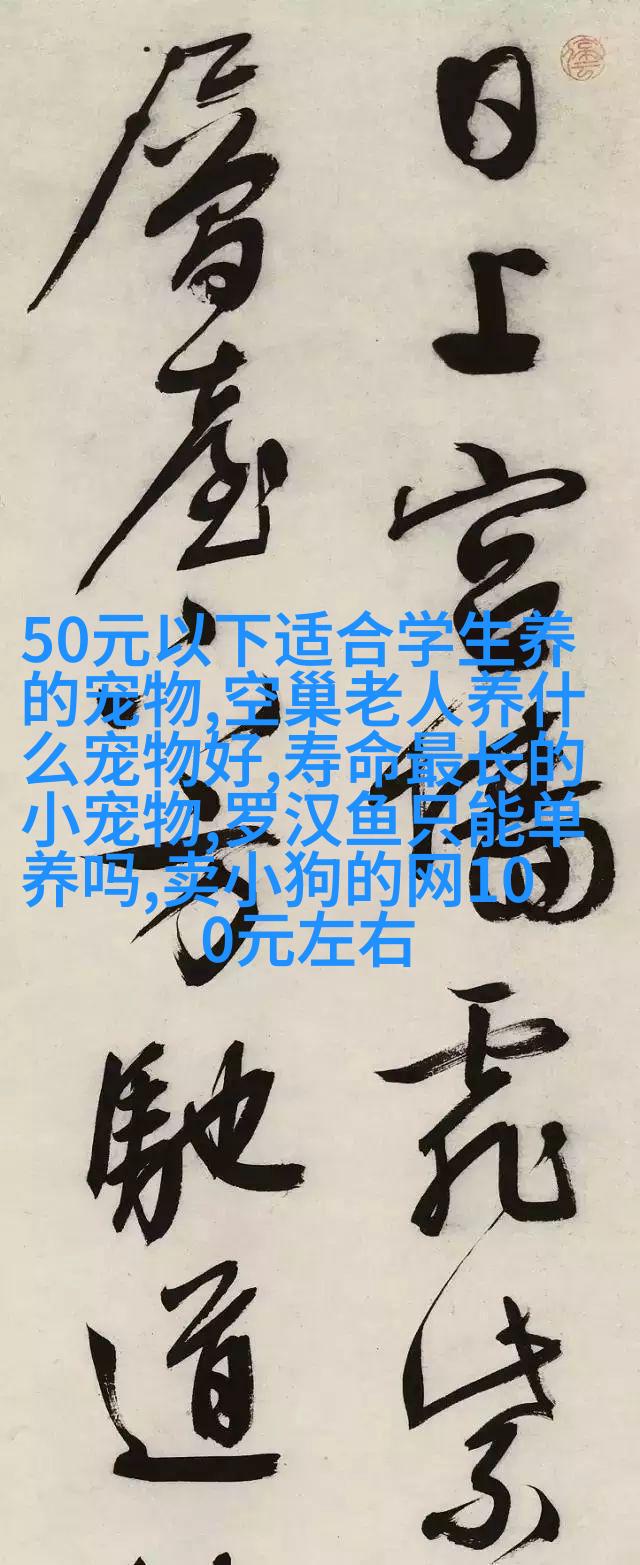 日上宮墻飛紫
層臺下方馳道
50元以下适合学生养
的宠物,空巢老人养什
么宠物好,寿命最长的
小宠物,罗汉鱼只能单
养吗,卖小狗的网10
0元左右